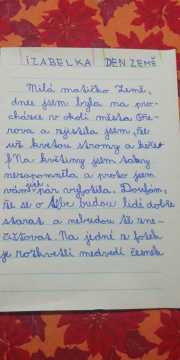 IZABELKA DEN ZEMĚ
Milá matičko Země,
dnes jsem byla na pro-
cházce v okolí města Pře-
rova a zjistila jsem, že
už kvetou stromy a keře!
Na květiny jsem taky
nezapomněla a proto jsem
jich
vám pár vyfotila. Doufám,
že se o Tebe budou lidé dobře
starat a nebudou tě zne-
čišťovat. Na jedné z fotek
je rozkvetlý medvědí česnek